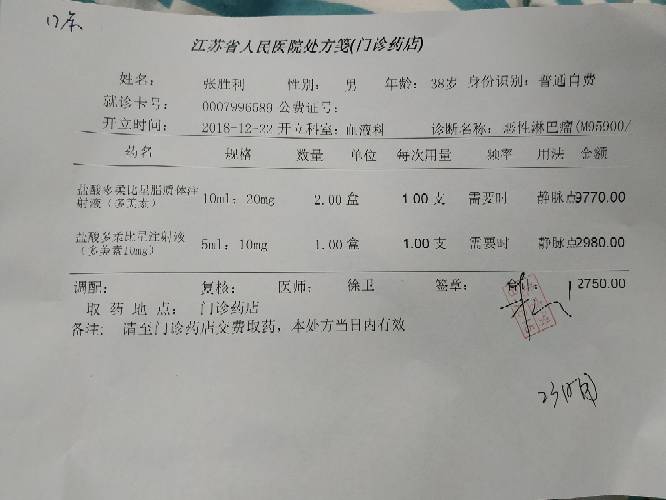 17床
江苏省人民医院处方笺(门诊药店)
姓名： 张胜利 性别： 男 年龄： 38岁 身份识别： 普通自费
就诊卡号： 0007996589 公费证号：
开立时间： 2018-12-22 开立科室： 血液科 诊断名称： 恶性淋巴瘤(M95900/
药名 规格 数量 单位 每次用量 频率 用法 金额
盐酸多柔比星脂质体注射液（多美素） 10ml：20mg 2.00 盒 1.00 支 需要时 静脉点 9770.00
盐酸多柔比星注射液（多美素10mg） 5ml：10mg 1.00 盒 1.00 支 需要时 静脉点 2980.00
调配： 复核： 医师： 徐卫 签章： 2750.00
取药地点： 门诊药店
备注： 请至门诊药店交费取药，本处方当日内有效